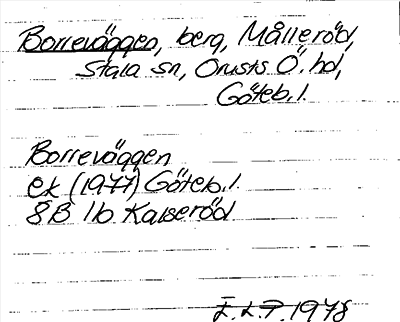 Borreväggen, berg, Målleröd,
Stala sn, Orusts Ö. hd,
Göteb. l.
Borreväggen
ek (1977) Göteb. l.
8B 1b Kalseröd
E.L.P. 1978